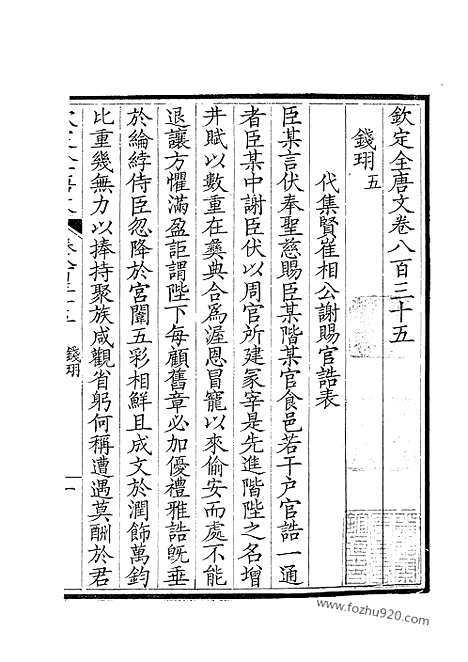 欽定全唐文卷八百三十五
錢珝五
代集賢崔相公謝賜官誥表
臣某言伏奉聖慈賜臣某階某官食邑若干户官誥一通
者臣某中謝臣伏以周官所建冢宰是先進階陛之名增
井賦以數重在彝典合為渥恩冒寵以來偷安而處不能
退讓方懼滿盈詎謂陛下每顧舊章必加優禮雅誥旣垂
於綸綍侍臣忽降於宮闈五彩相鮮且成文於潤飾萬鈞
比重幾無力以捧持聚族咸觀省躬何稱遭遇莫酬於君
錢珝
一
www.fozhu920.com